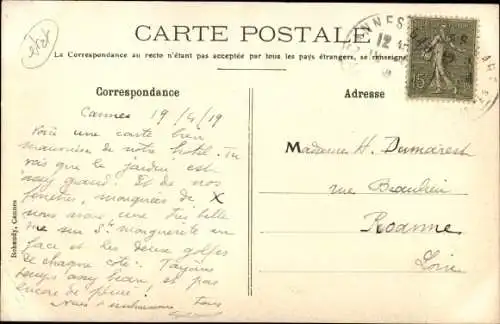 etét
CARTE POSTALE
La Correspondance au recto n'étant pas acceptée par tous les pays étrangers, se renseigner
Correspondance
Cannes 19/4/19
Voici une carte bien
mauvaise de notre hôtel. Tu
vois que le jardin est
assez grand. Et de nos
fenêtres, marquées de X
nous avons une très belle
vue sur Ste marguerite en
face et les deux golfes
de chaque côté. Toujours
temps assez beau, et pas
encore de pluie!
Nous t'embrassons tous
Adresse
Madame H. Dumarest
rue Beaulieu
Roanne
Loire
Bohaudy, Cannes
CANNES
12
15